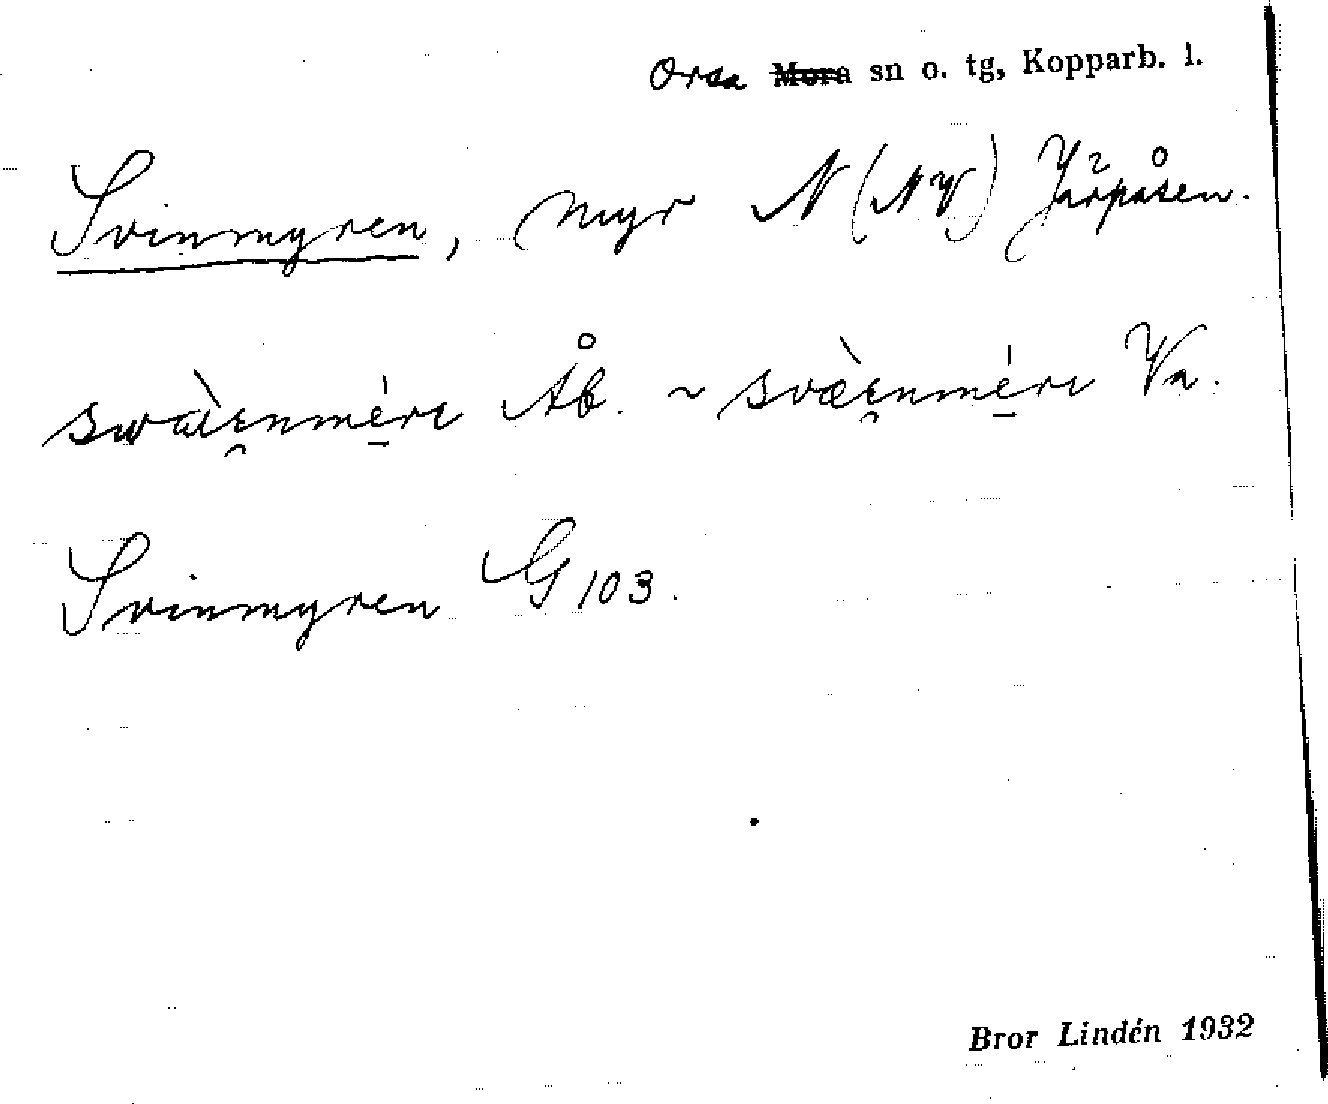 Orsa ~~Mora~~ sn o. tg, Kopparb. l.
Svinmyren, myr N (NV) Järpåsen.
swàiɛ̯nmé̠rɩ Åb. ~ svæ̀ɛ̯nmé̠rɩ Va.
Svinmyren G 103.
Bror Lindén 1932